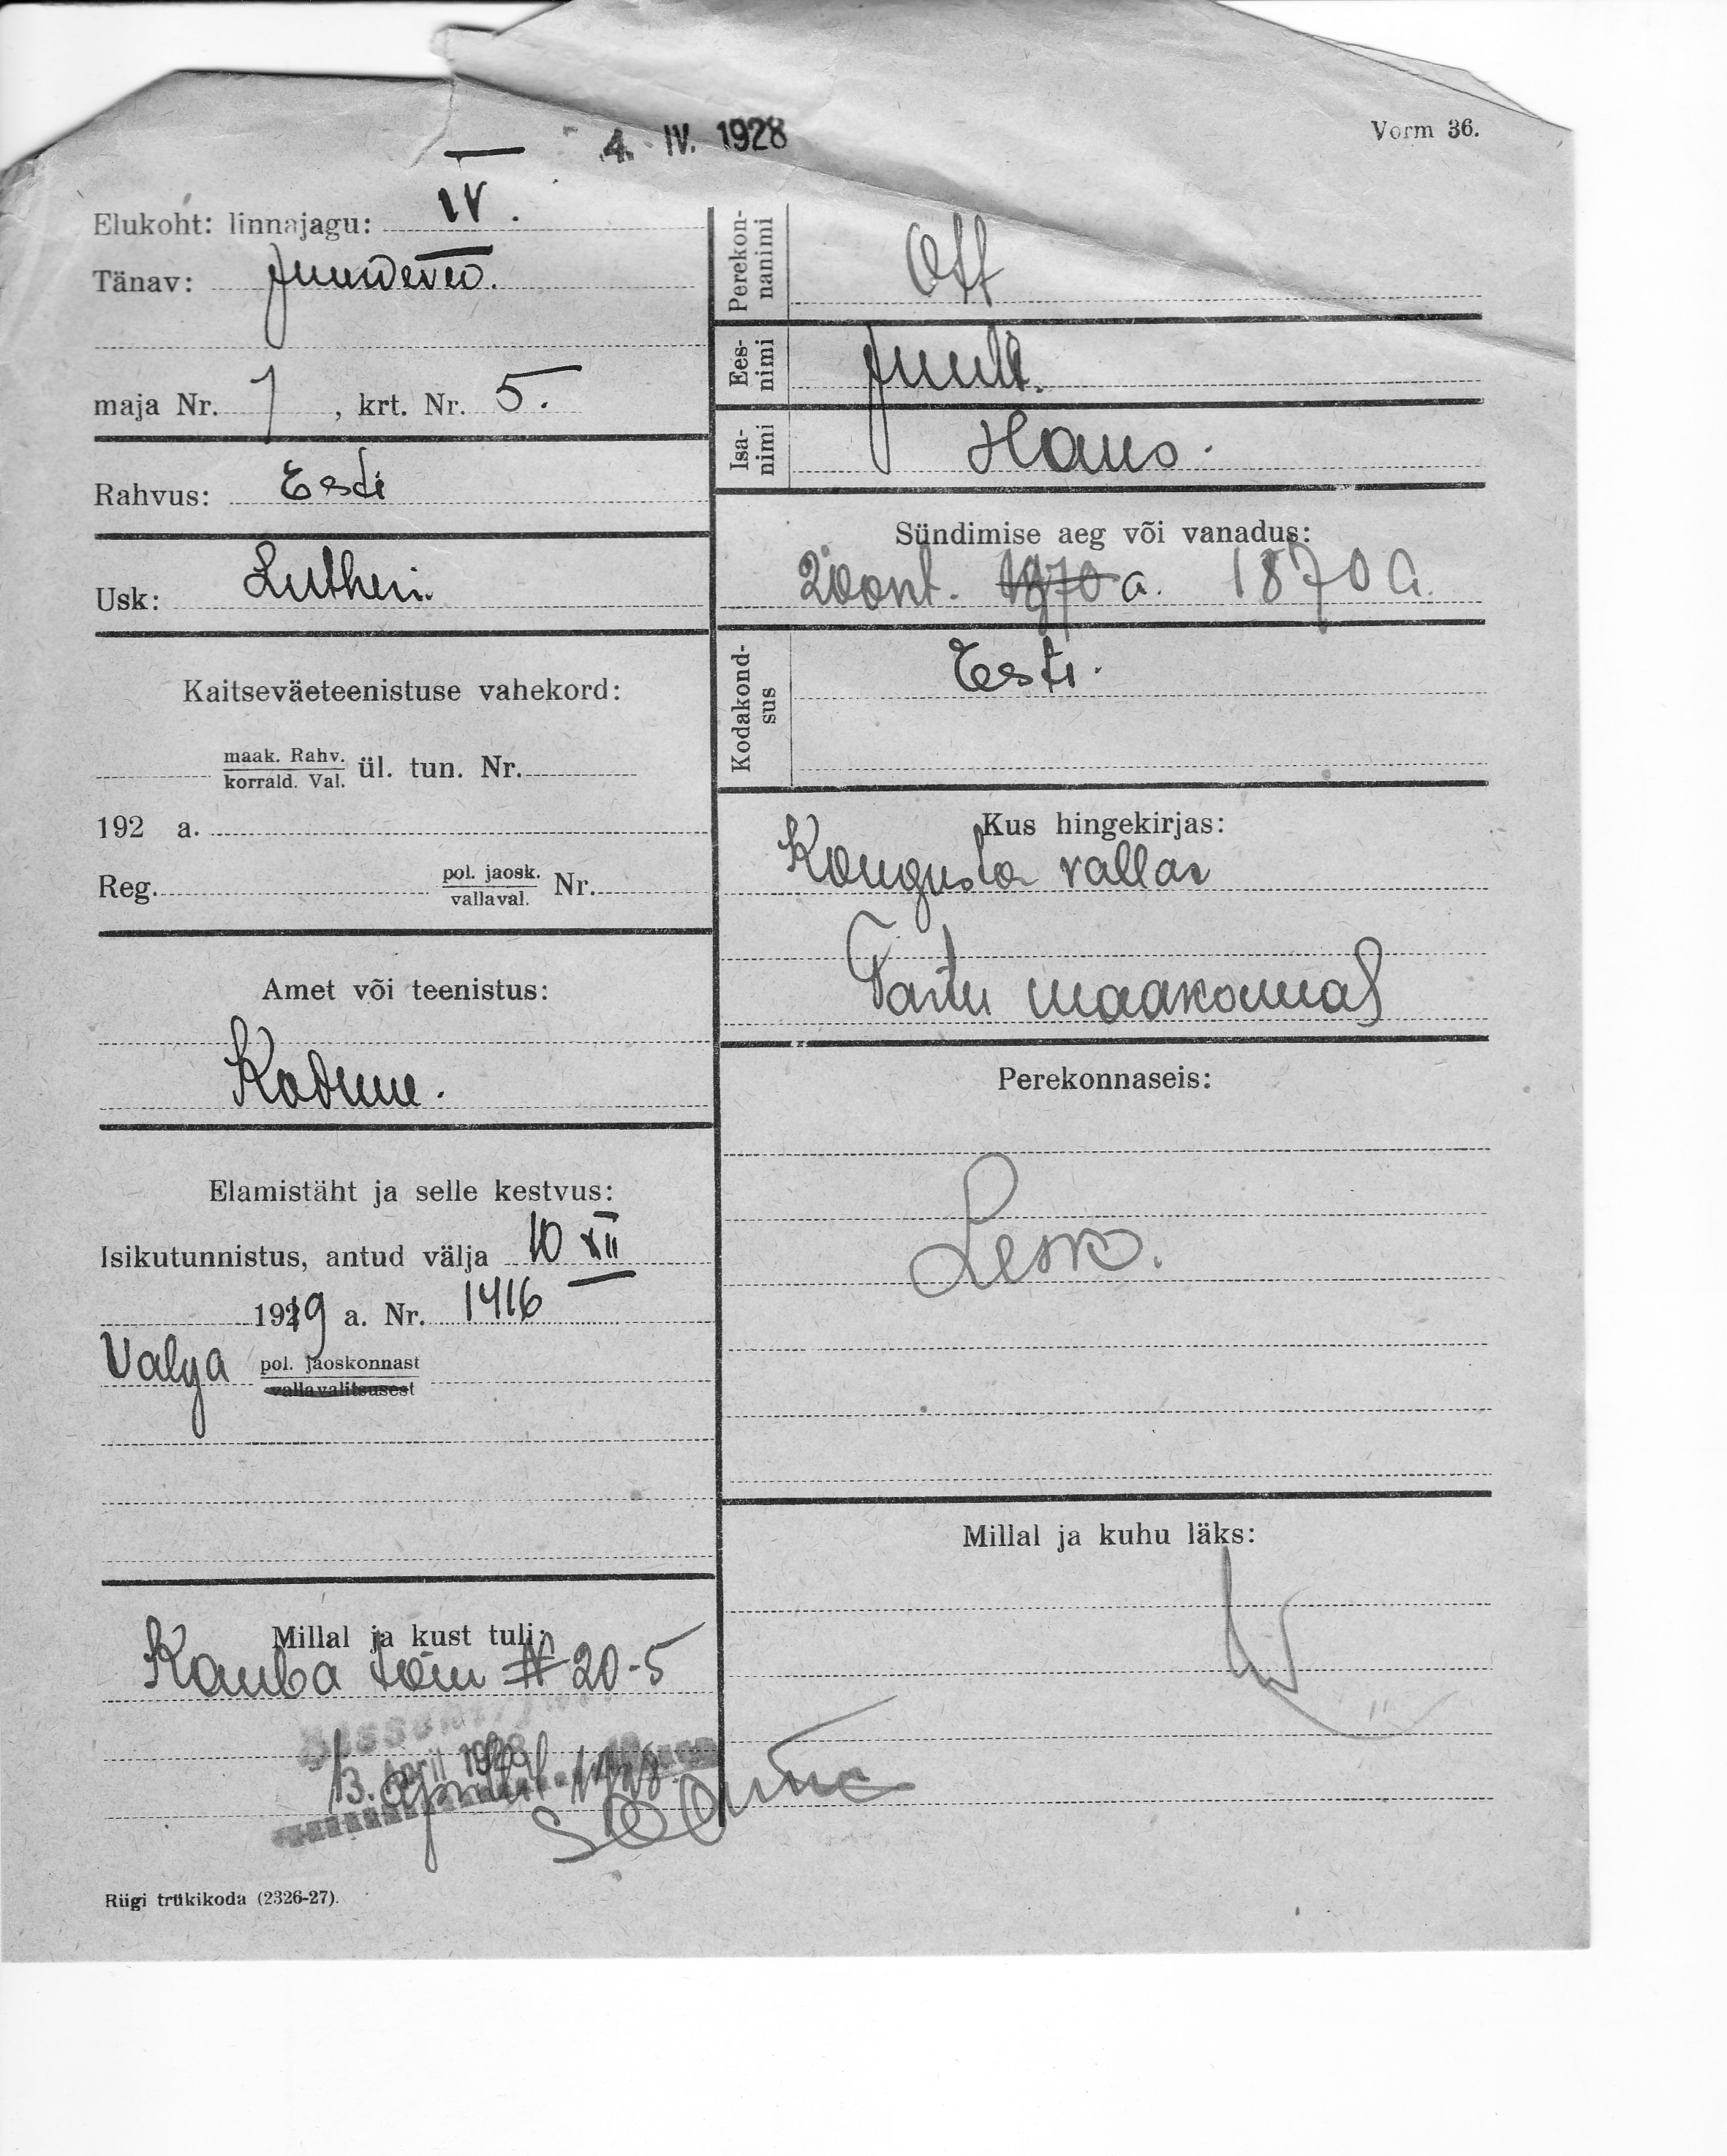 4. IV. 1928
Vorm 36.
Elukoht: linnajagu: IV.
Tänav:
maja Nr. 7, krt. Nr. 5.
Rahvus: Eesti
Usk: Lutheri.
Kaitseväeteenistuse vahekord:
maak. Rahv.
korrald. Val. ül. tun. Nr.
192 a.
Reg. pol. jaosk.
vallaval. Nr.
Amet või teenistus:
Kodune.
Elamistäht ja selle kestvus:
Isikutunnistus, antud välja 10 XII
1919 a. Nr. 1416
Valga pol. jaoskonnast
vallavalitsusest
Millal ja kust tuli:
Kauba tän № 20-5
13. April 1928
aprillil 1928
Riigi trükikoda (2326-27).
Perekon-
nanimi Ott
Ees-
nimi Juuli.
Isa-
nimi Hans.
Sündimise aeg või vanadus:
a. 1870 a.
Kodakond-
sus Eesti.
Kus hingekirjas:
Konguta vallas
Tartu maakonnas
Perekonnaseis:
Lesk.
Millal ja kuhu läks: